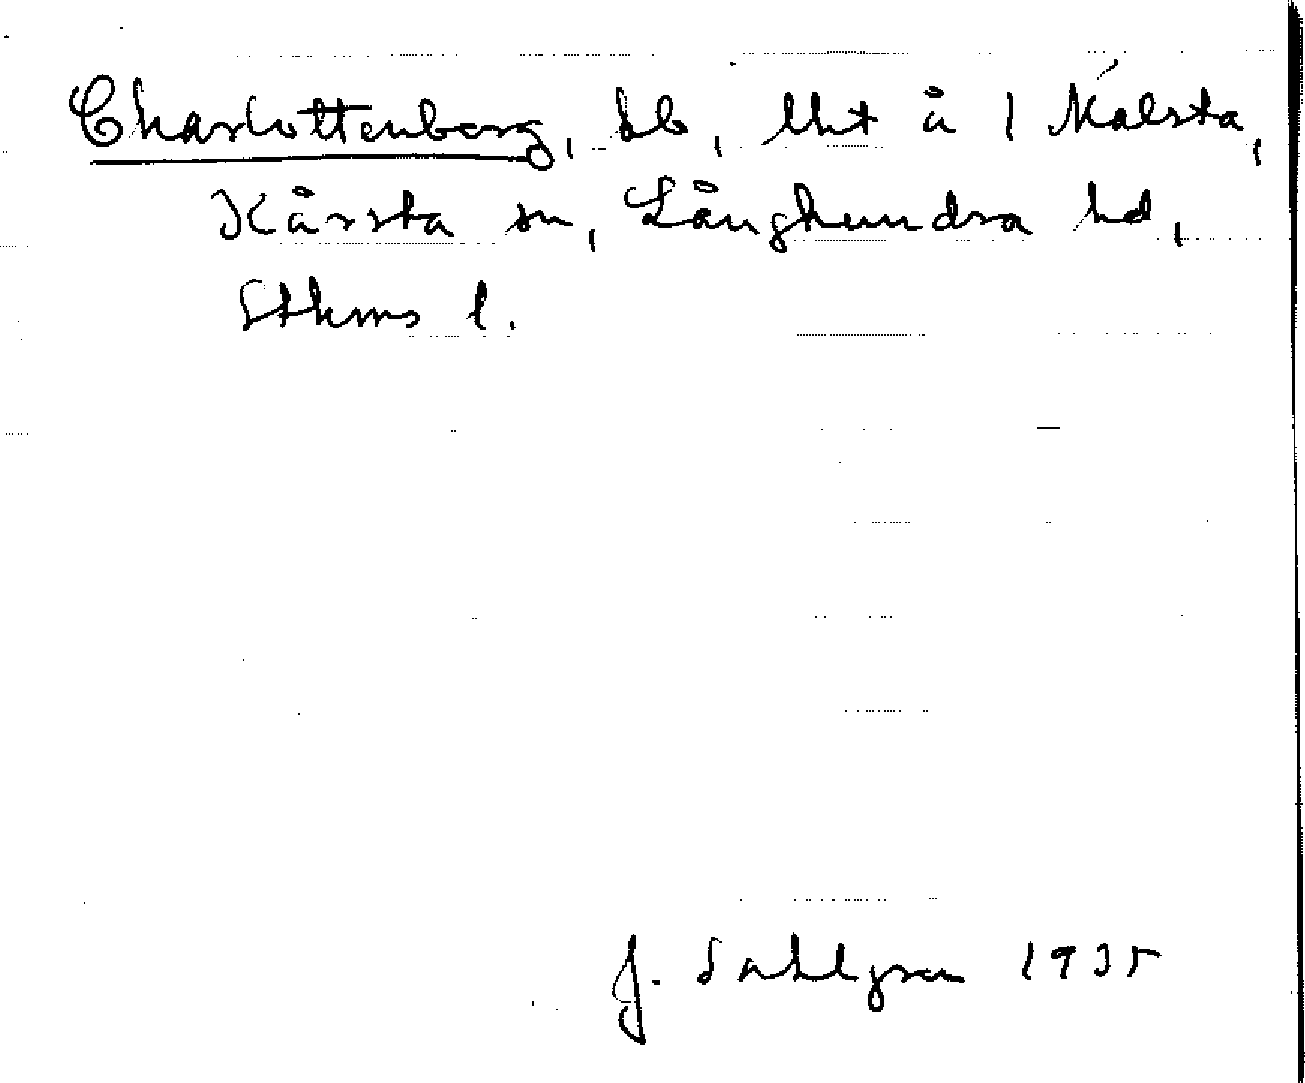 Charlottenberg, lb, lht å 1 Malsta,
Kårsta sn, Långhundra hd,
Sthms l.
J. Sahlgren 1935